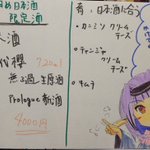 日本酒
限定酒
代櫻
720ml
無ろ過生原酒
Prologue 新酒
4000円
有、日本酒に合う
・カンミン クリーム
チーズ
・チャンジャ
クリーム
チーズ
・キムチ